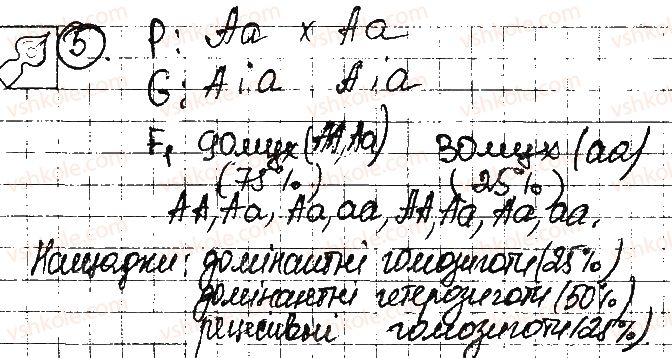 5. P: Aa x Aa
G: A i a A i a
F1 90мух (AA, Aa) 30мух (aa)
(75%) (25%)
AA, Aa, Aa, aa, AA, Aa, Aa, aa.
Нащадки: домінантні гомозиготи (25%)
домінантні гетерозиготи (50%)
рецесивні гомозиготи (25%).